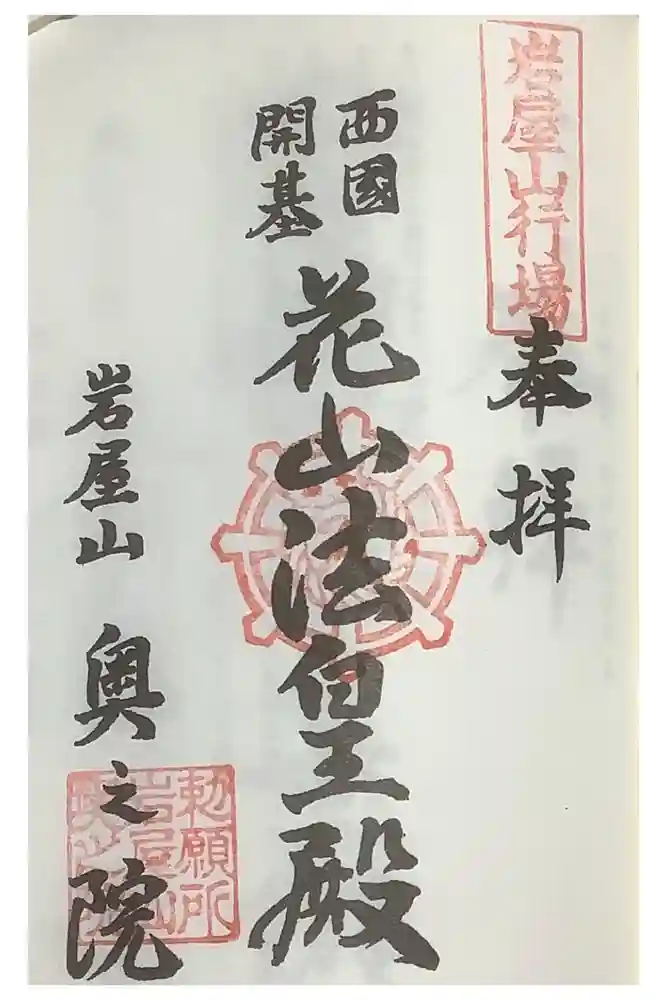 岩屋山行場
奉拝
西國
開基
花山法皇殿
岩屋山 奥之院
勅願所
岩屋山
奥之院